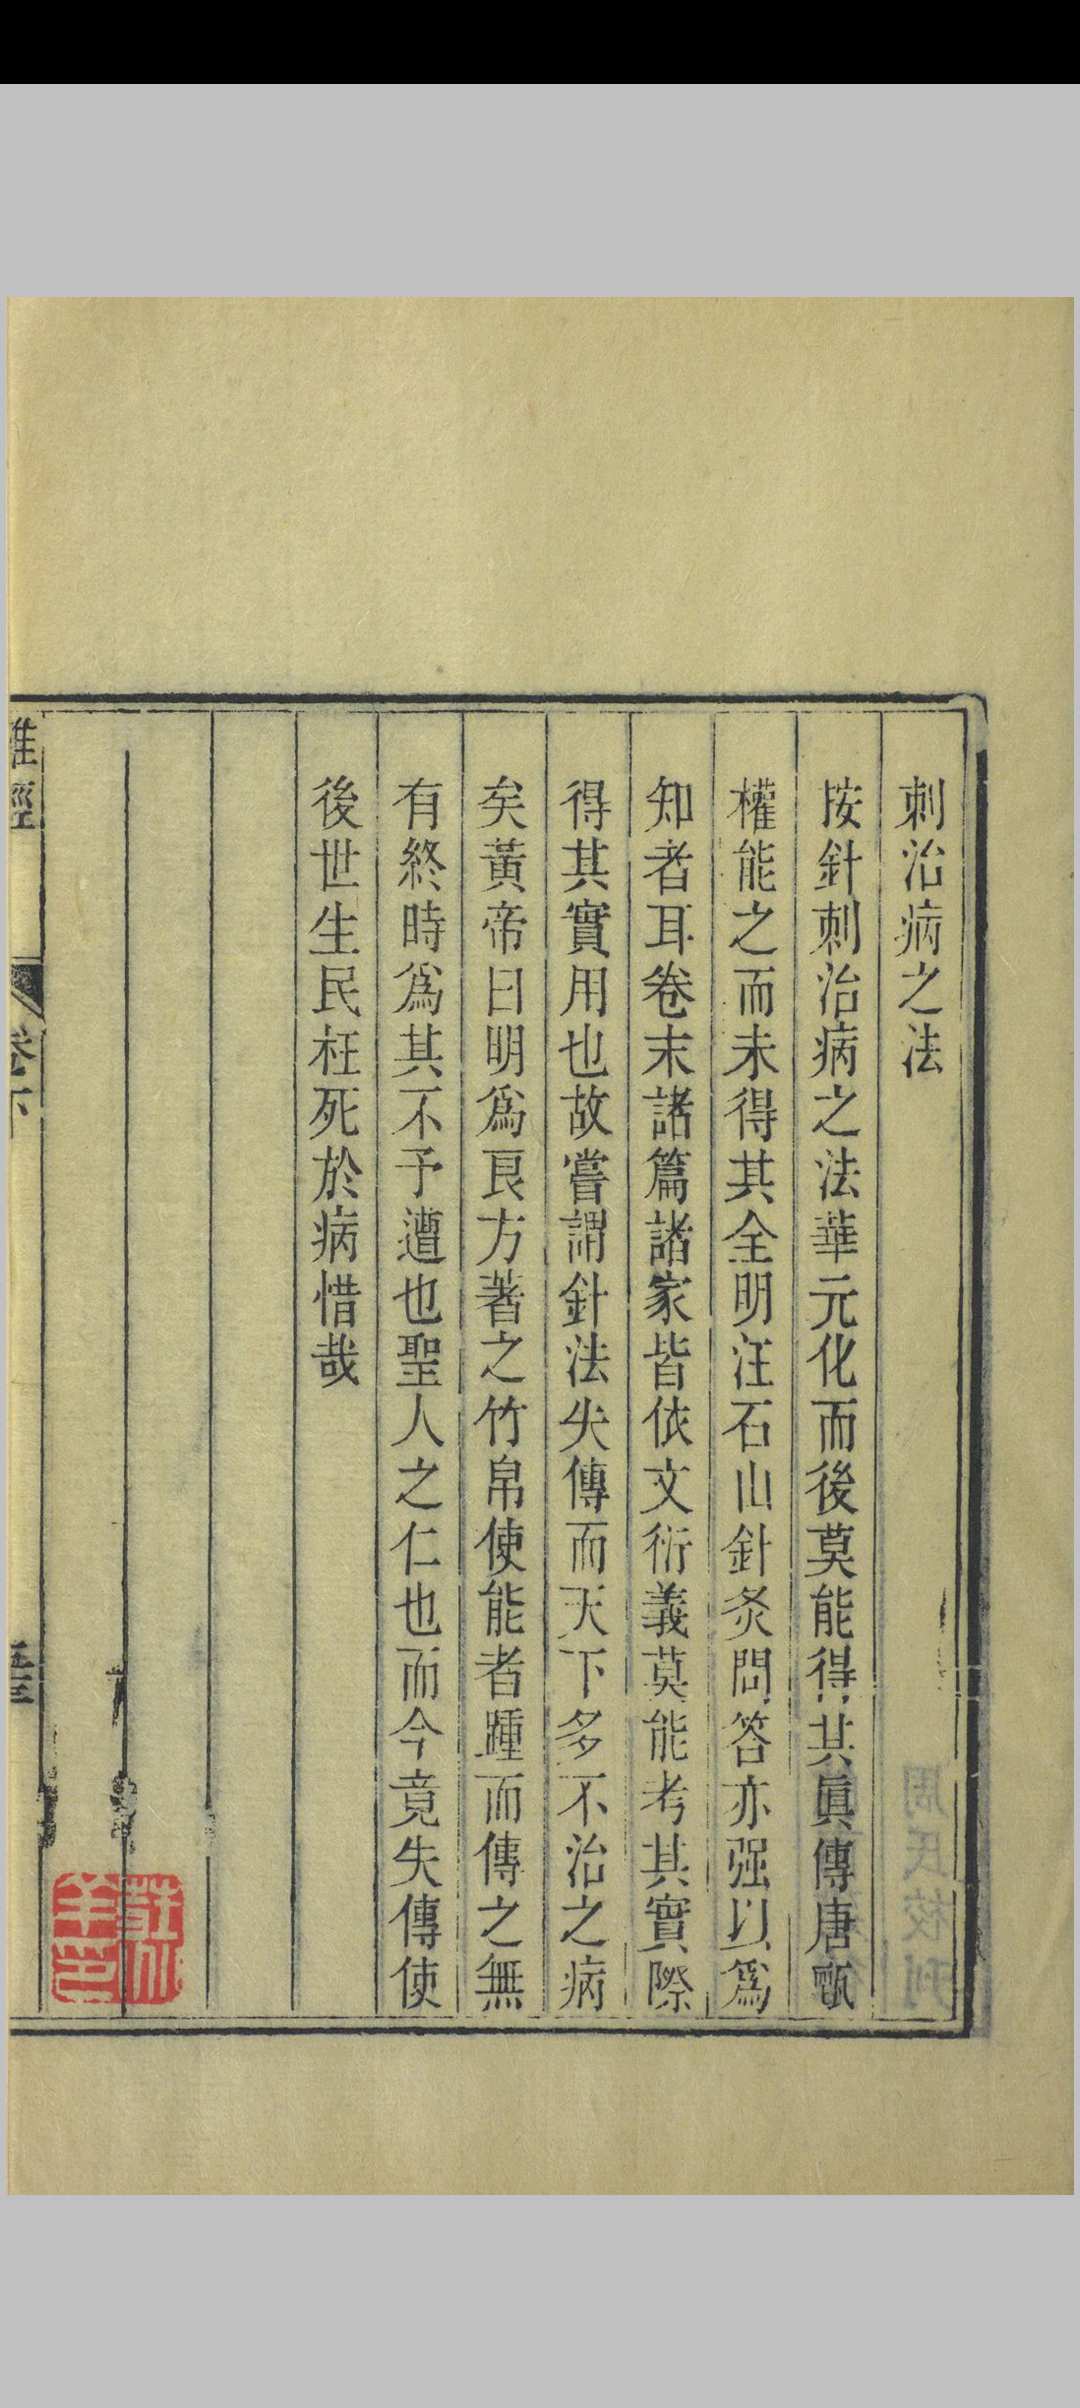 刺治病之法
按針刺治病之法華元化而後莫能得其眞傳唐甄
權能之而未得其全明汪石山針灸問答亦强以爲
知者耳卷末諸篇諸家皆依文衍義莫能考其實際
得其實用也故嘗謂針法失傳而天下多不治之病
矣黃帝曰明爲良方著之竹帛使能者踵而傳之無
有終時爲其不予遭也聖人之仁也而今竟失傳使
後世生民枉死於病惜哉
經
卷下
周氏校刊